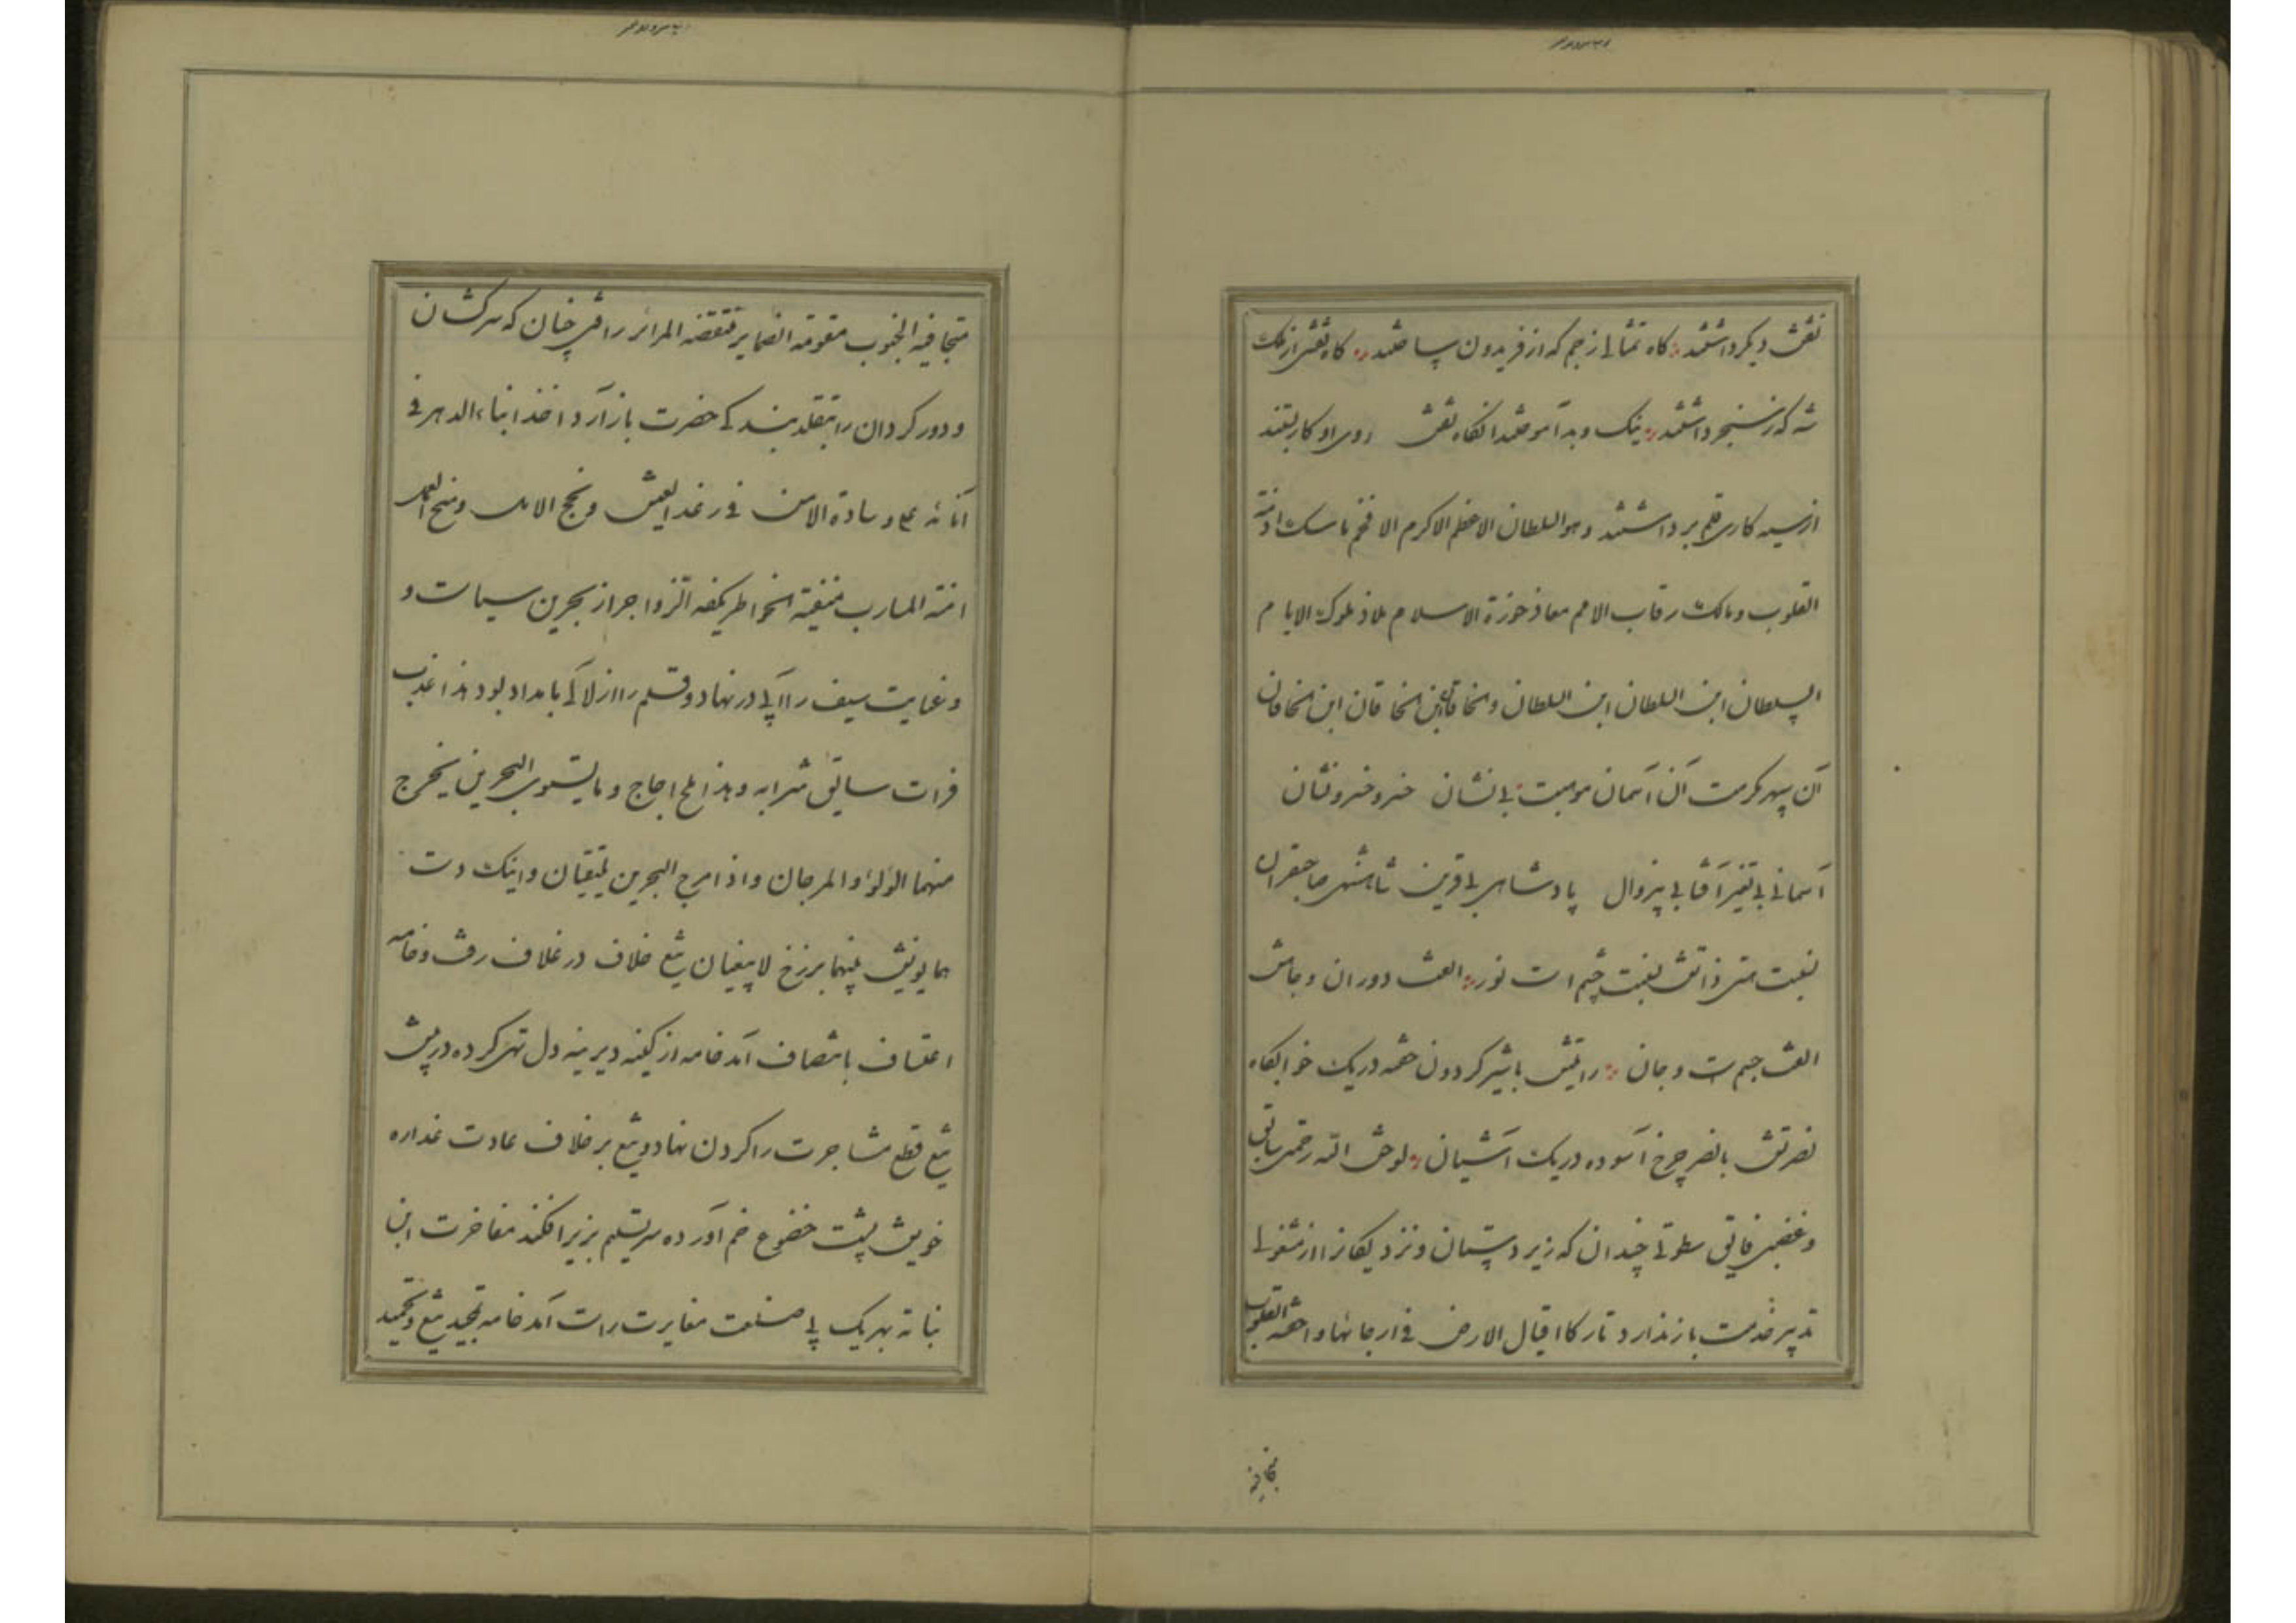 نقش دیکر داشتند کاه تمثالی ز جم که از فریدون ساختند کاه نقشی از ملک
شه که ز سنجر داشتند نیک و بد آموختند انکاه نقش روی او کار بستند
از سیه کاری قلم برداشتند و هو السلطان الاعظم الاکرم الافخم ماسک ازمّة
القلوب و مالک رقاب الامم معاذ حوزة الاسلام ملاذ ملوک الایام
السلطان ابن السلطان ابن السلطان و الخاقان ابن الخاقان ابن الخاقان
آن سپهر مکرمت آن آسمان موهبت بی نشان خسرو خسرو نشان
آسمانی بی تغیر آفتابی بیزوال پادشاهی بی قرین شاهنشهی صاحبقران
نسبت هستی ذاتش نسبت چشم است نور الفت دوران و جاهش
الفت جسم است و جان رایتش با شیر کردون خفته در یک خوابکاه
نصرتش با نسر چرخ آسوده در یک آشیان لوحش الله رحمتی سابق
و غضبی فایق سطوتی چندان که زیر دستان و نزدیکانرا از مشغولی
تدبیر خدمت باز ندارد تارکا اقیال الارض فی ارجائها واجفة القلوب
متجافیة
متجافیة الجنوب مقومة الضمایر منتقضة المرائر رافتی چنان که سرکشان
و دور کردان را بتقلد بندکی حضرت باز آرد اخذا ابناء الدهر فی
آنائه علی وسادة الامن فی رغد العیش و نجح الامل و منح العمل
امنة المارب منفیة الخواطر بکفه الزواجر از بحرین سیاست و
و عنایت سیف را آبی در نهاد و قلم را از لآلی بامداد بود هذا عذب
فرات سائق شرابه و هذا ملح اجاج و ما یستوی البحرین یخرج
منهما اللؤلؤ و المرجان و اذا مرج البحرین یلتقیان و اینک دست
همایونش بینهما برزخ لا یبغیان تیغ خلاف در غلاف رفت و خامه
اعتساف بانتصاف آمد خامه از کینه دیرینه دل تهی کرده در پیش
تیغ قطع مشاجرت را کردن نهاد و تیغ بر خلاف عادت غداره
خویش پشت خضوع خم آورده سر تسلیم بزیر افکند مفاخرت ابن
نباته بهر یک بی صنعت مغایرت راست آمد خامه تمجید تیغ و تحمید